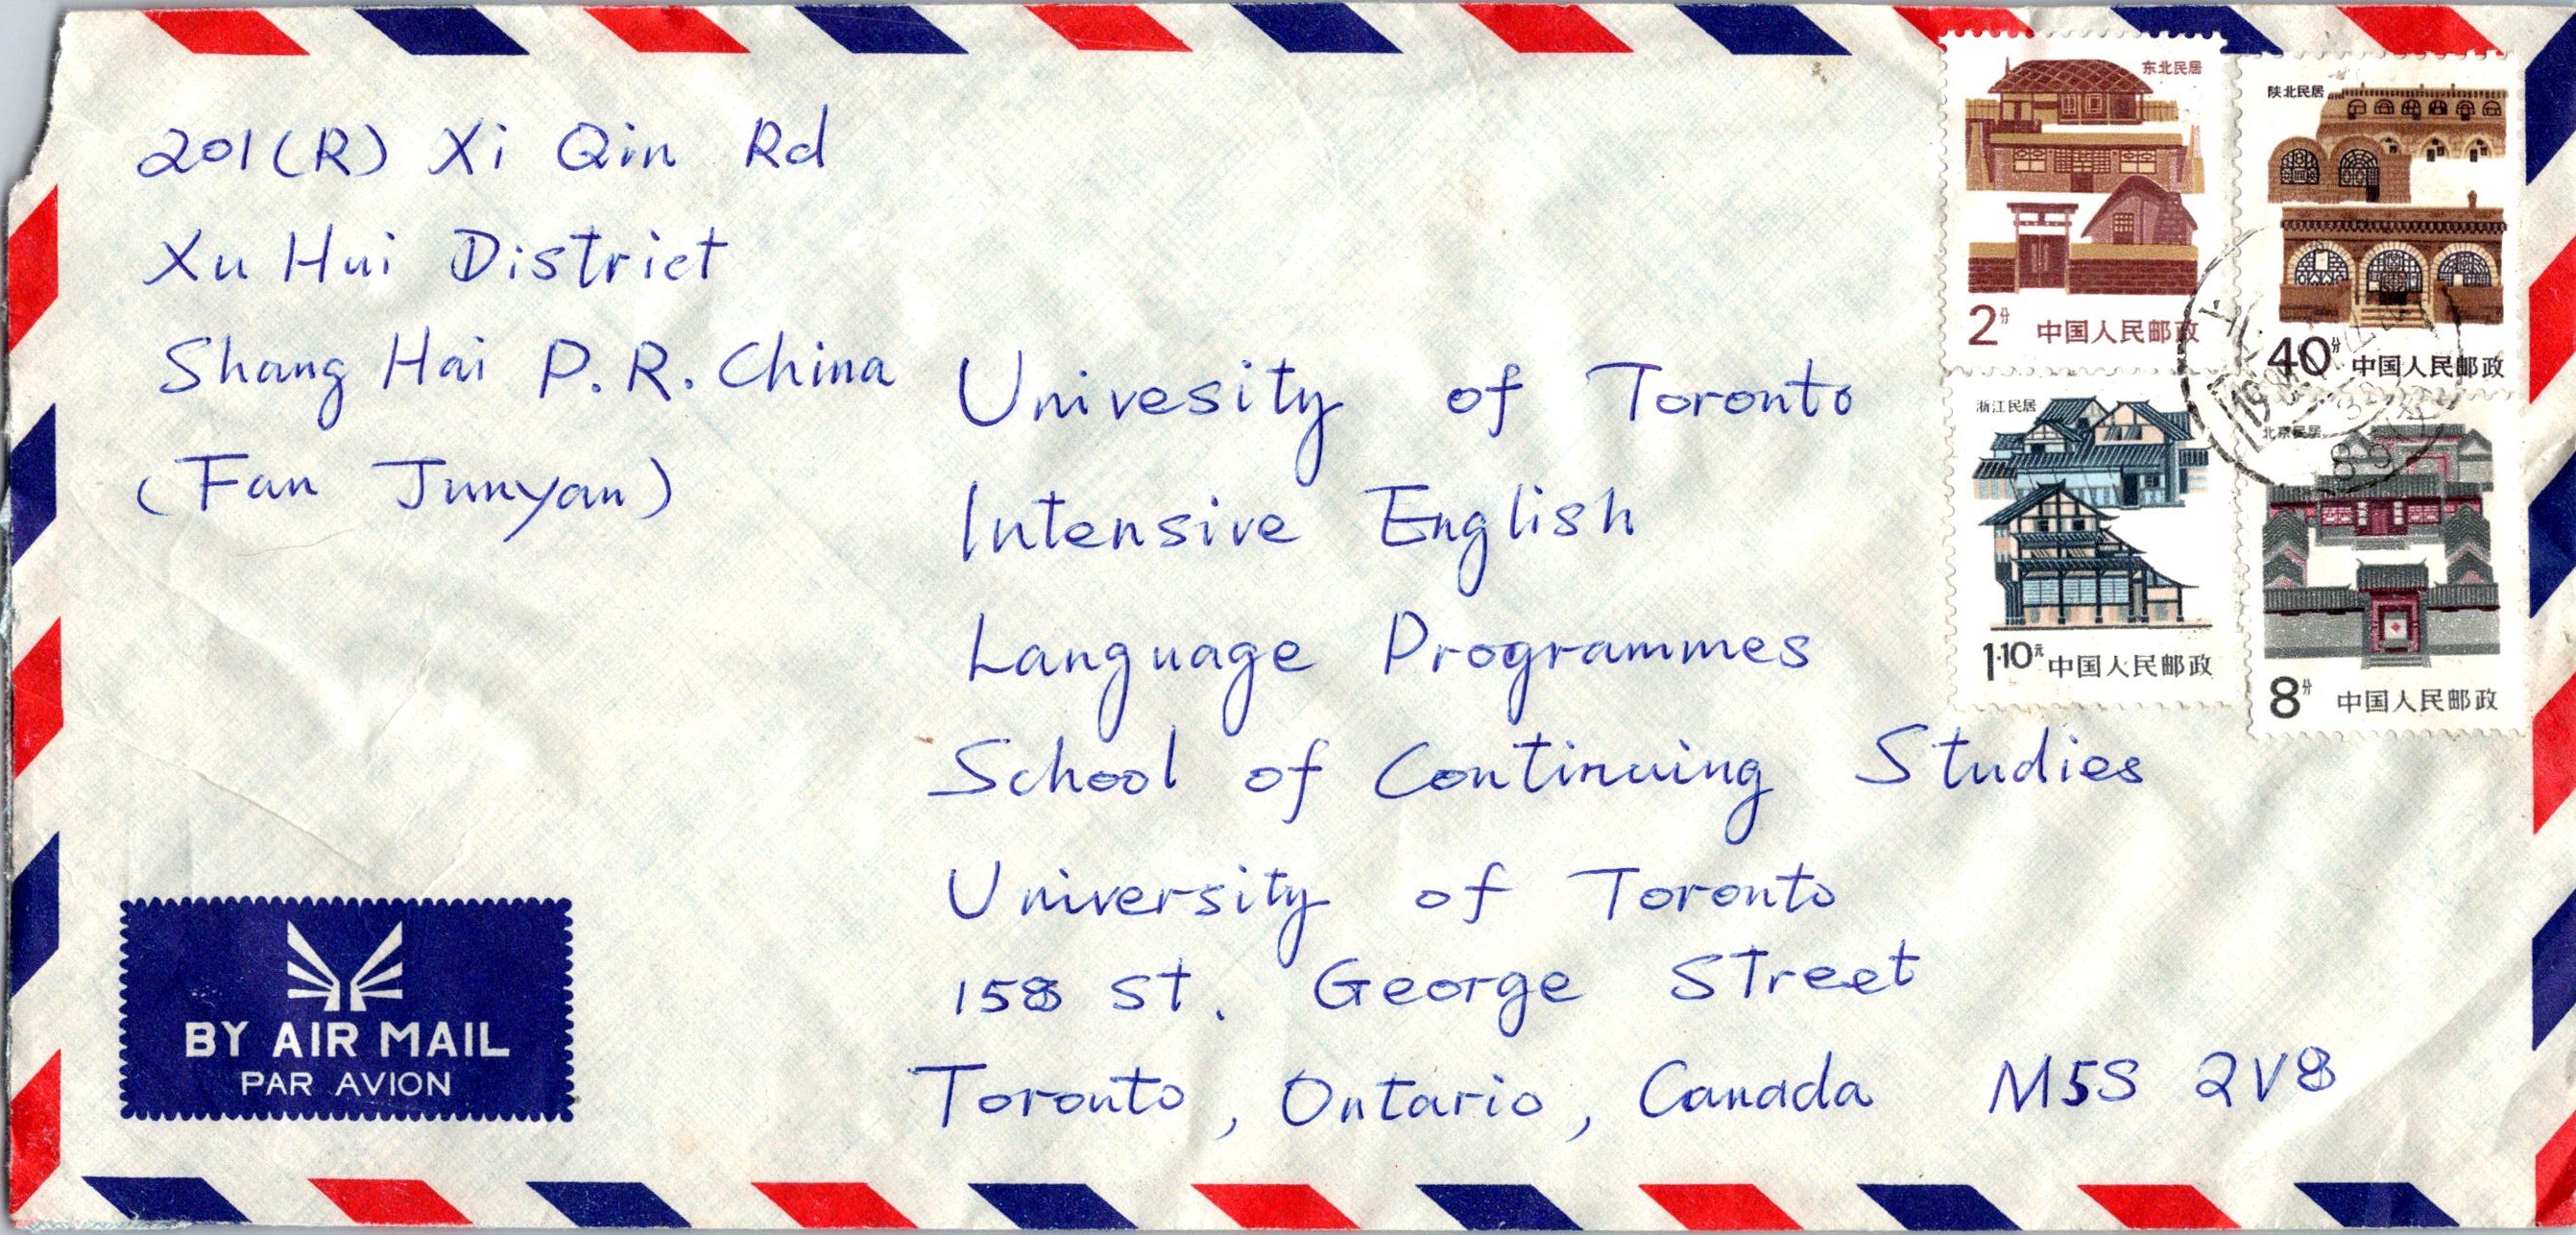 201(R) Xi Qin Rd
Xu Hui District
Shang Hai P.R. China
(Fan Junyan)
东北民居
2分 中国人民邮政
陕北民居
40分 中国人民邮政
浙江民居
1.10元 中国人民邮政
北京民居
8分 中国人民邮政
Univesity of Toronto
Intensive English
Language Programmes
School of Continuing Studies
University of Toronto
158 St. George Street
Toronto, Ontario, Canada M5S 2V8
BY AIR MAIL
PAR AVION